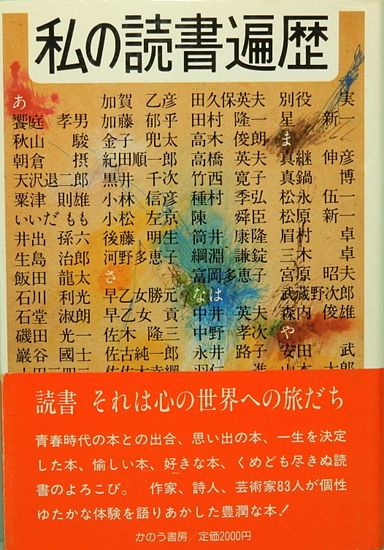 私の読書遍歴
あ
饗庭 孝男
秋山 駿
朝倉 摂
天沢退二郎
粟津 則雄
いいだ もも
井出 孫六
生島 治郎
飯田 龍太
石川 利光
石堂 淑朗
磯田 光一
巌谷 國士
加賀 乙彦
加藤 郁乎
金子 兜太
紀田順一郎
黒井 千次
小林 信彦
小松 左京
後藤 明生
河野多恵子
さ
早乙女勝元
早乙女 貢
佐木 隆三
佐古純一郎
田久保英夫
田村 隆一
高木 俊朗
高橋 英夫
竹西 寛子
種村 季弘
陳 舜臣
筒井 康隆
綱淵 謙錠
富岡多恵子
な は
中井 英夫
中野 孝次
永井 路子
別役 実
星 新一
ま
真継 伸彦
真鍋 博
松永 伍一
松原 新一
眉村 卓
三木 卓
宮原 昭夫
武蔵野次郎
森内 俊雄
や
安田 武
読書 それは心の世界への旅だち
青春時代の本との出合、思い出の本、一生を決定
した本、愉しい本、好きな本、くめども尽きぬ読
書のよろこび。 作家、詩人、芸術家83人が個性
ゆたかな体験を語りあかした豊潤な本!
かのう書房／定価2000円